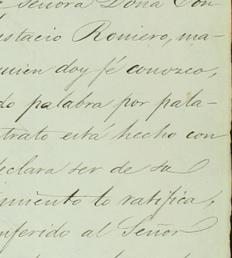 Señora Doña Con-
ustacio Romero, ma-
quien doy fé conozco,
do palabra por pala-
trato está hecho con
declara ser de su
miento lo ratifica,
nferido al Señor